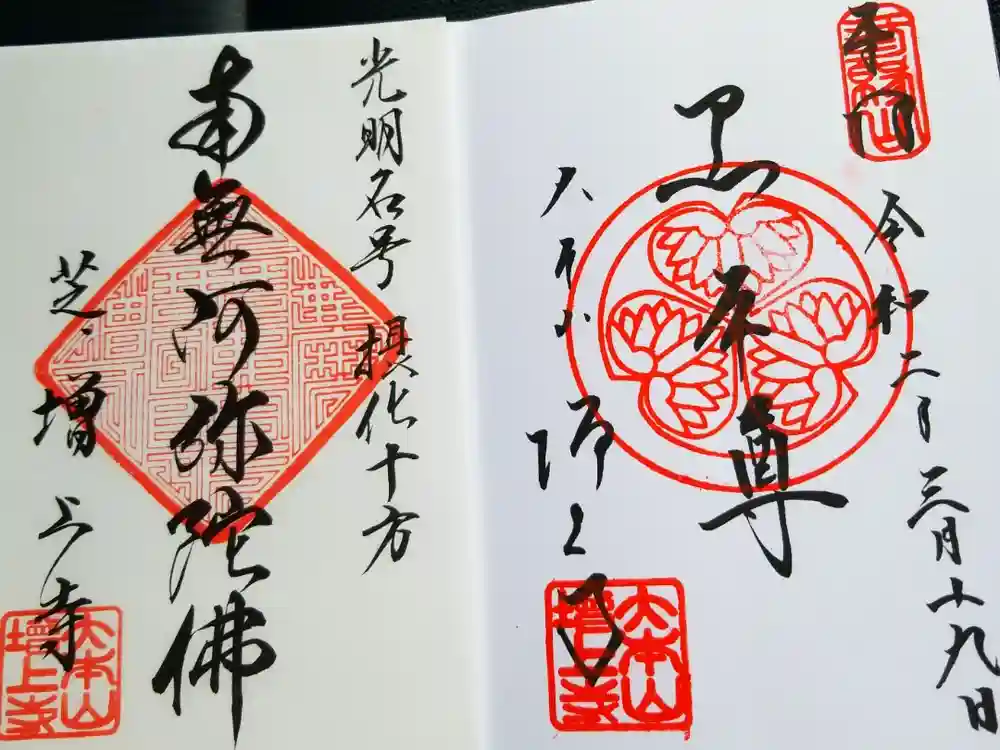 奉拝
令和二年三月十九日
黒本尊
大本山
増上寺
大本山
増上寺
光明名号 摂化十方
南無阿弥陀佛
芝 増上寺
大本山
増上寺